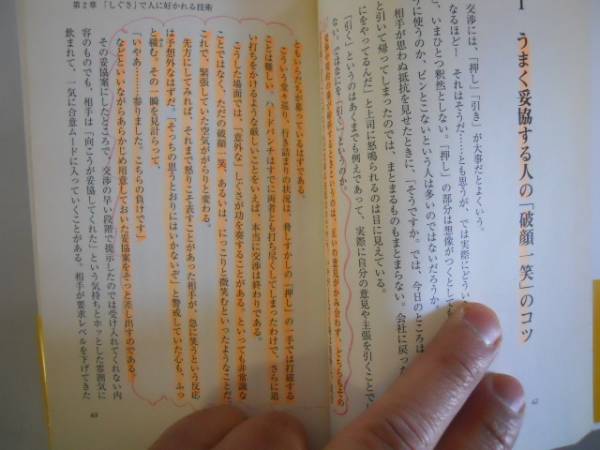 1 うまく妥協する人の「破顔一笑」のコツ
交渉には、「押し」「引き」が大事だとよくいう。
なるほど！ それはそうだ……とも思うが、では実際にどうい
と、いまひとつ釈然としない。「押し」の部分は想像がつくとして
に使うのか、ピンとこないという人は多いのではないだろうか。
相手が思わぬ抵抗を見せたときに、「そうですか。では、今日のところは
と引いて帰ってしまったのでは、まとまるものもまとまらない。会社に戻った
にをやってるんだ」と上司に怒鳴られるのは目に見えている。
「引く」というのはあくまでも例えであって、実際に自分の意見や主張を引くことで
ない。ではなにを「引く」というのか。
62
第2章 「しぐさ」で人に好かれる技術
ともいらだちが募っているはずである。
こういう堂々巡り、行き詰まりの状況は、脅しすかしの「押し」の一手では打破する
ことは難しい。ハードパンチはすでに両者とも打ち尽くしてしまったわけで、さらに追
い打ちをかけるような厳しいことをいえば、本当に交渉は終わりである。
こうした場面では、「意外な」しぐさが功を奏することがある。といっても非常識な
ことではなく、ただの破顔一笑、あるいは、にっこりと微笑むといったようなことだ。
これで、緊張していた空気ががらりと変わる。
先方にしてみれば、それまで怒りこそ表すことがあった相手が、急に笑うという反応
は予想外なはずだ。「そっちの思うとおりにはいかないぞ」と警戒していた心も、ふっ
と緩む。その一瞬を見計らって、
「いやあ……参りました。こちらの負けです」
などといいながらあらかじめ用意しておいた妥協案をさっと差し出すのである。
その妥協案にしたところで、交渉の早い段階で提示したのでは受け入れてくれない内
容のものでも、相手は「向こうが妥協してくれた」という気持ちとホッとした雰囲気に
飲まれて、一気に合意ムードに入っていくことがある。相手が要求レベルを下げてきた
63